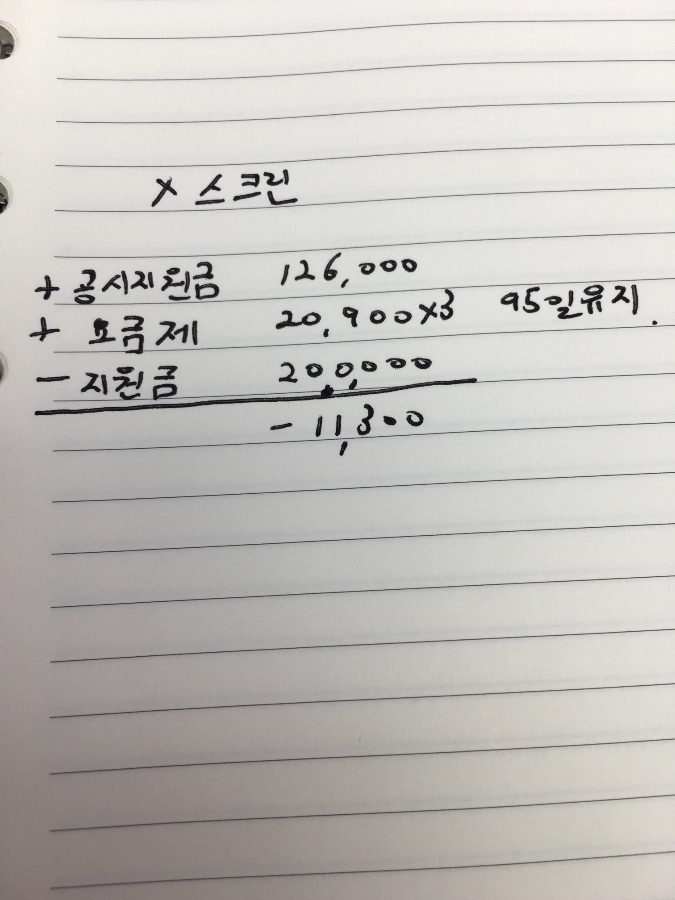 X 스크린
+ 공시지원금 126,000
+ 요금제 20,900x3 95일유지.
- 지원금 200,000
- 11,300